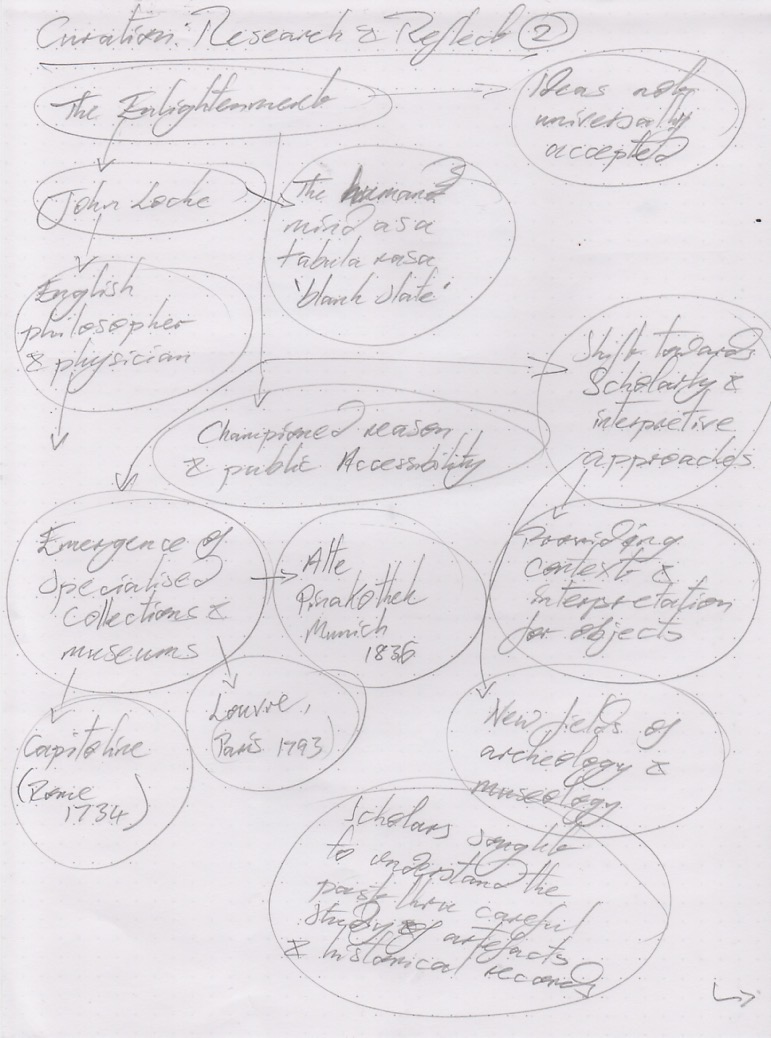 Curation: Research & Reflect 2
The Enlightenment
Ideas not
universally
accepted
John Locke
The human
mind as a
tabula rasa
'blank slate'
English
philosopher
& physician
Shift towards
Scholarly &
interpretive
approaches
Championed reason
& public Accessibility
Emergence of
specialised
collections &
museums
Alte
Pinakothek
Munich
1836
Providing
context &
interpretation
for objects
Louvre,
Paris 1793
Capitoline
(Rome
1734)
New fields of
archeology &
museology
Scholars sought
to understand the
past thru careful
study of artefacts
& historical records